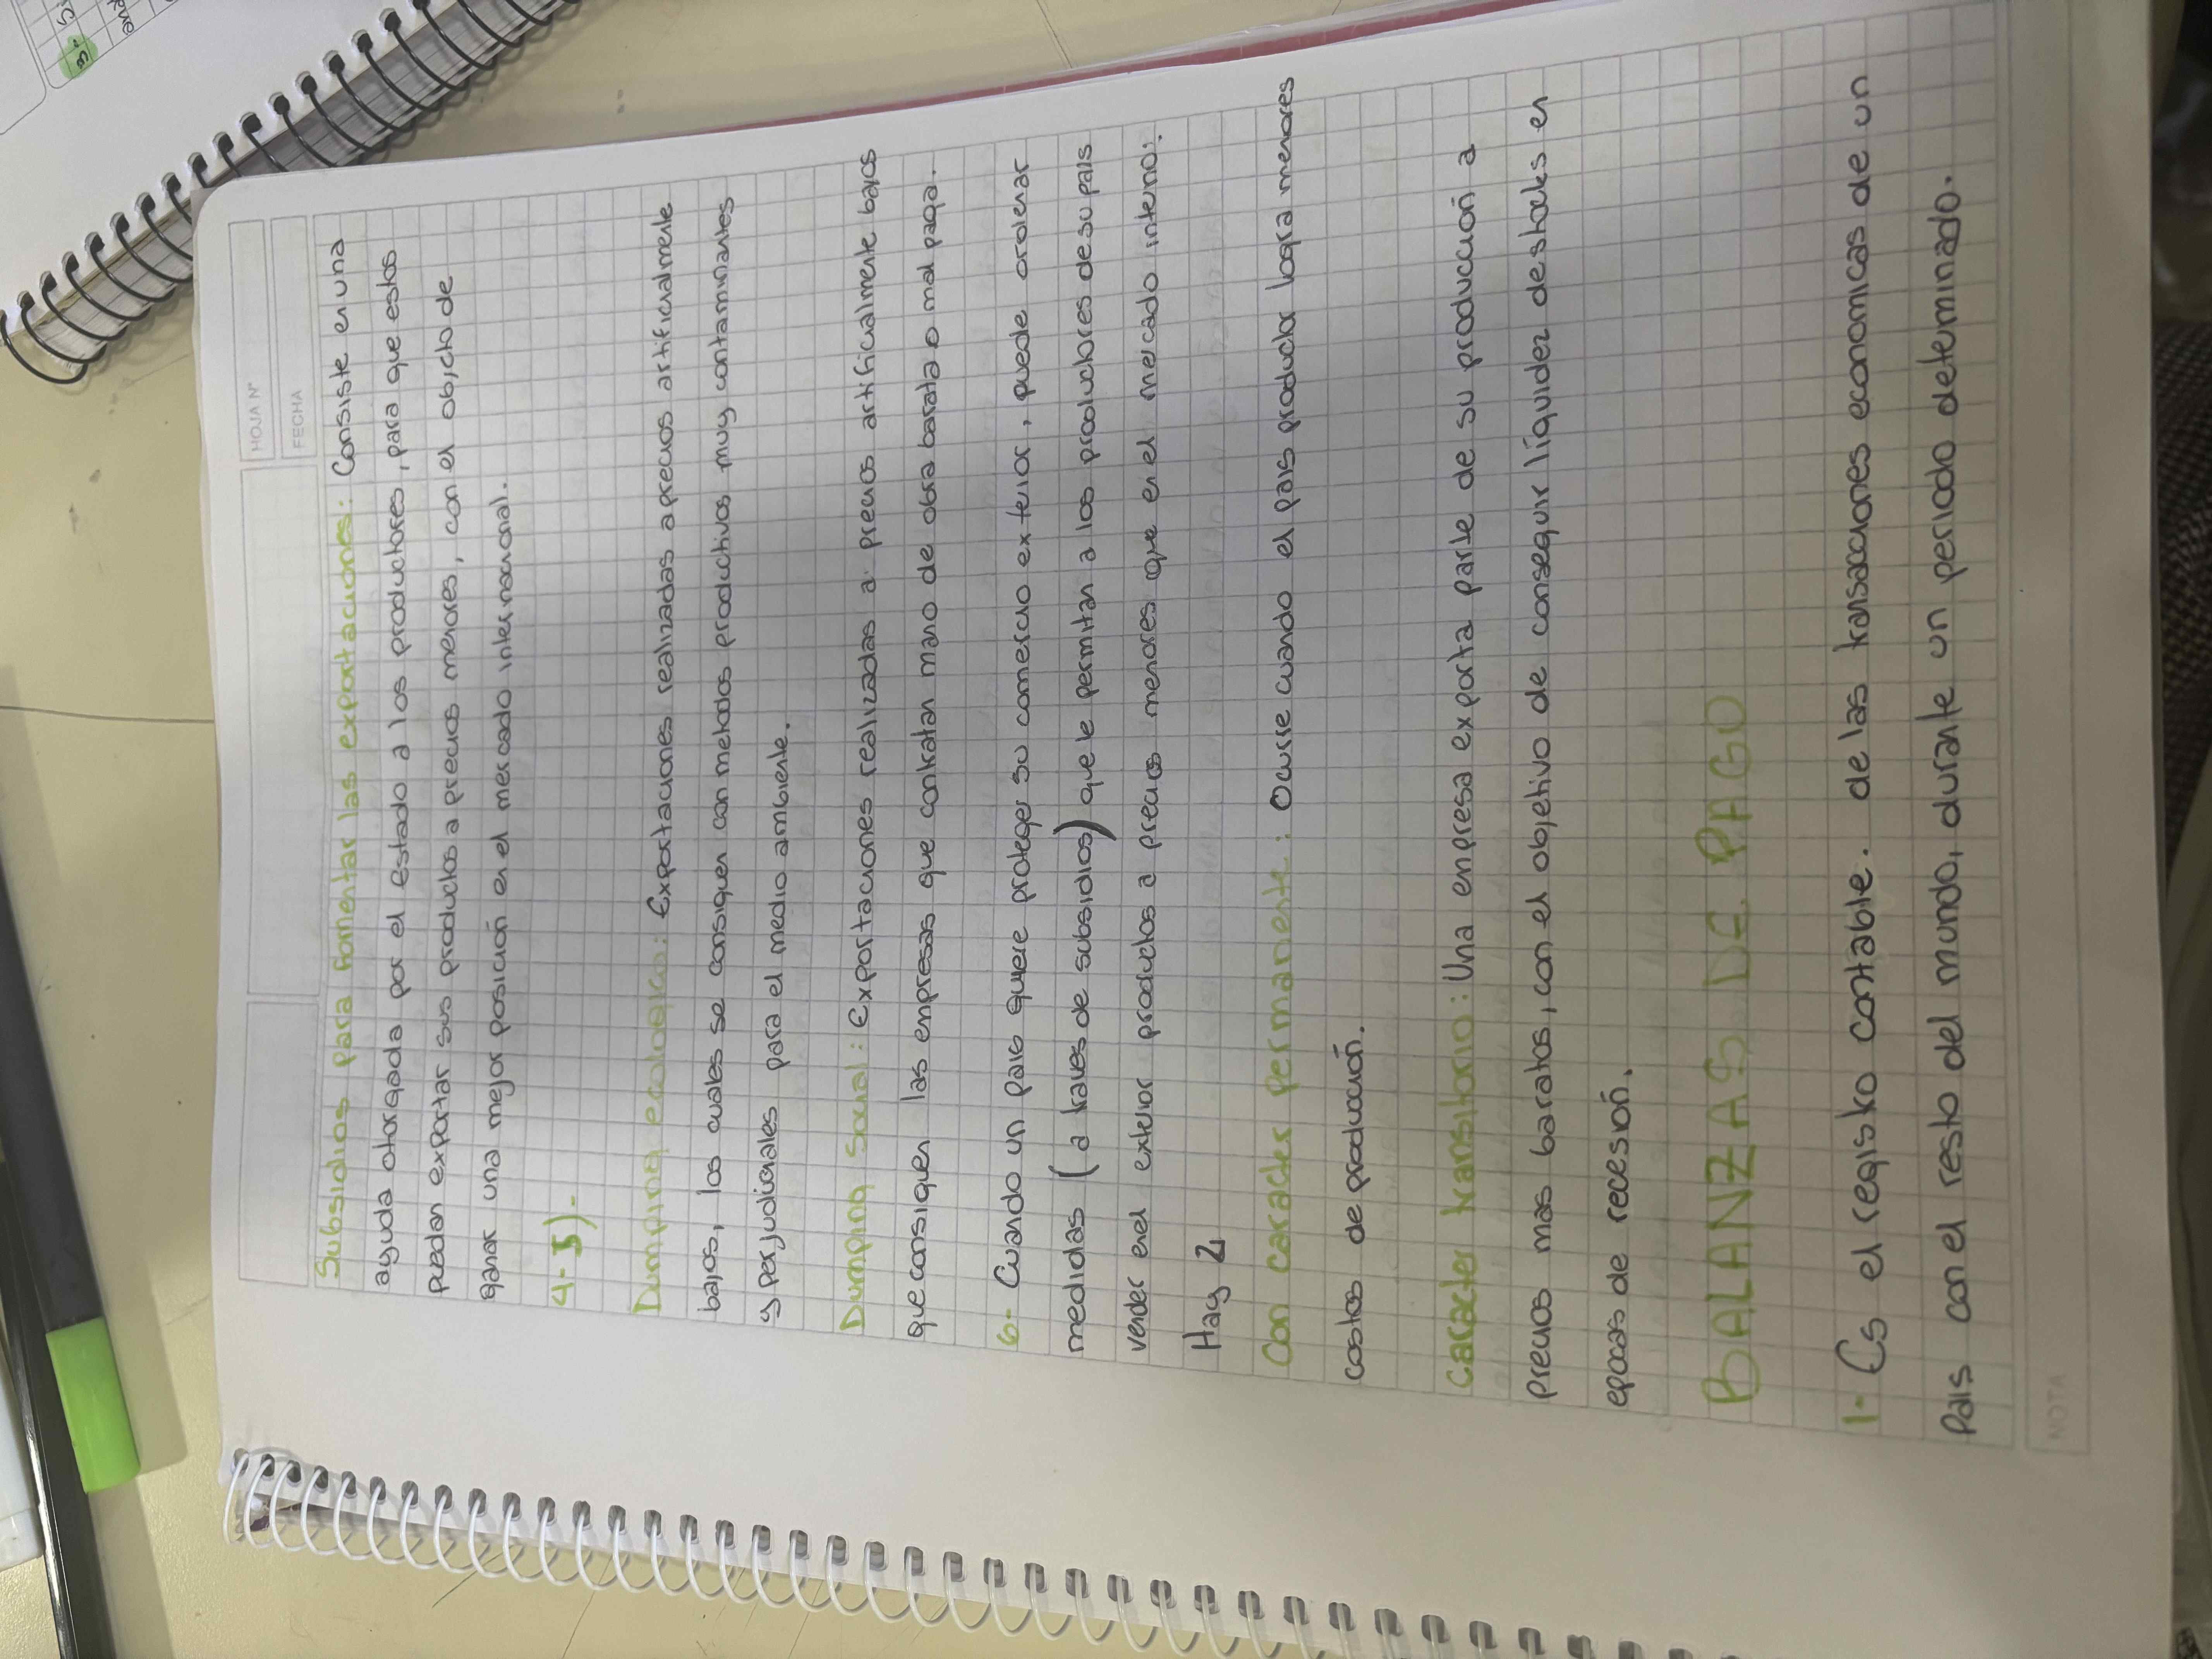 HOJA Nº
FECHA
Subsidios para fomentar las exportaciones: Consiste en una
ayuda otorgada por el estado a los productores, para que estos
puedan exportar sus productos a precios menores, con el objeto de
ganar una mejor posición en el mercado internacional.
4-5).-
Dumping ecologico: Exportaciones realizadas a precios artificialmente
bajos, los cuales se consiguen con metodos productivos muy contaminantes
y perjudiciales para el medio ambiente.
Dumping social: Exportaciones realizadas a precios artificialmente bajos
que consiguen las empresas que contratan mano de obra barata o mal paga.
6- Cuando un pais quiere proteger su comercio exterior, puede ordenar
medidas (a traves de subsidios) que le permitan a los productores de su pais
vender en el exterior productos a precios menores que en el mercado interno:
Hay 2
Con caracter permanente: Ocurre cuando el pais productor logra menores
costos de producción.
Caracter transitorio: Una empresa exporta parte de su producción a
precios mas baratos, con el objetivo de conseguir líquidez de stocks en
epocas de recesión.
BALANZAS DE PAGO
1- Es el registro contable. de las transacciones economicas de un
Pais con el resto del mundo, durante un periodo determinado.
NOTA
3: